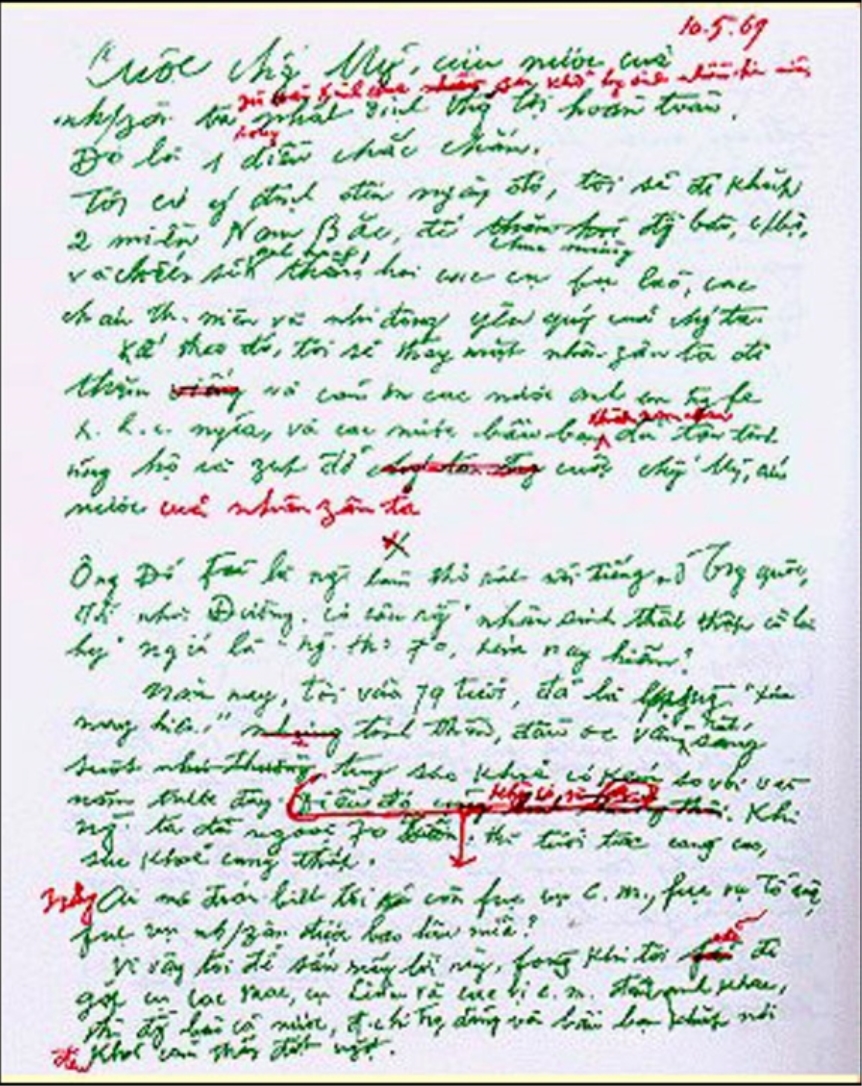 10.5.69
Cuộc chg Mỹ, cứu nước của
zù fải kinh qua nhiều gan khổ hy sinh nhiều hơn nữa
nh/zân ta nhất định thg lợi hoàn toàn.
song
Đó là 1 điều chắc chắn.
Tôi có ý định đến ngày đó, tôi sẽ đi khắp
2 miền Nam Bắc, để thăm hỏi đg bào, c/bộ,
chúc mừng
và chiến sĩ thăm hỏi các cụ fụ lão, các
cháu th. niên và nhi đồng yêu quý của chg ta.
Kế theo đó, tôi sẽ thay mặt nhân zân ta đi
thăm và cảm ơn các nước anh em trg fe
x. h. c. nghĩa, và các nước bầu bạn đã tận tình
ủng hộ và zúp đỡ cuộc chg Mỹ, cứu
nước của nhân zân ta
X
Ông Đỗ Fủ là ng làm thơ rất nổi tiếng ở Trg quốc,
đời nhà Đường. Có câu rg "nhân sinh thất thập cổ lai
hy" nghĩa là "ng. thọ 70, xưa nay hiếm".
Năm nay, tôi vừa 79 tuổi, đã là "xưa
nay hiếm" nhưng tinh thần, đầu óc vẫn rất sáng
suốt như thường tuy sức khoẻ có kém so với vài
năm trước đây. Điều đó cũng. Khi
ng. ta đã ngoài 70 xuân, thì tuổi tác càng cao,
sức khoẻ càng thấp.
Ai mà đoán biết tôi còn fục vụ c.m., fục vụ Tổ quốc,
fục vụ nh/zân được bao lâu nữa?
Vì vậy tôi để sẵn mấy lời này, fòng khi tôi sẽ đi
gặp cụ Các Mác, cụ Lênin và các vị c. m. đàn anh khác,
thì đg bào cả nước, đ.chí trg đảng và bầu bạn khắp nơi
đều khỏi cảm thấy đột ngột.